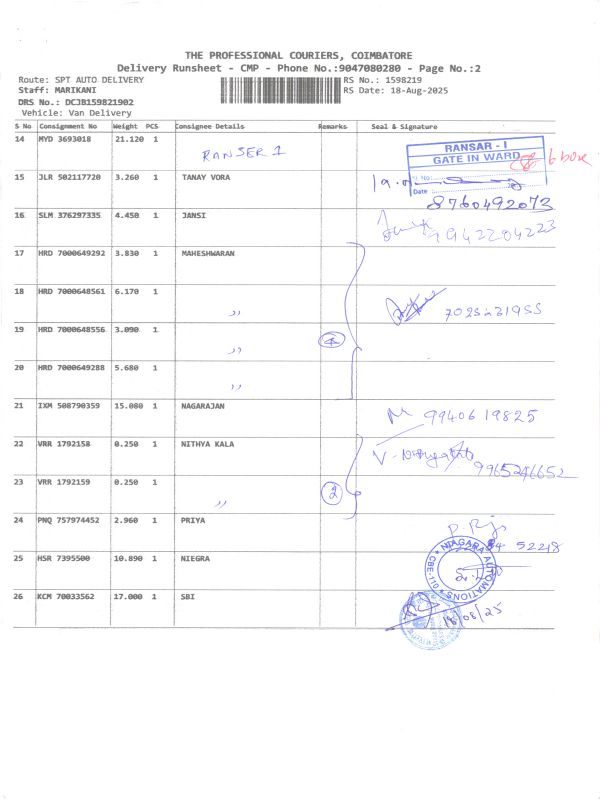 THE PROFESSIONAL COURIERS, COIMBATORE
Delivery Runsheet - CMP - Phone No.:9047080280 - Page No.:2
Route: SPT AUTO DELIVERY RS No.: 1598219
Staff: MARIKANI RS Date: 18-Aug-2025
DRS No.: DCJB159821902
Vehicle: Van Delivery
S No Consignment No Weight PCS Consignee Details Remarks Seal & Signature
14 MYD 3693018 21.120 1 RANSER 1
RANSAR - I
GATE IN WARD
6 box
Sl. No:
Date
15 JLR 502117720 3.260 1 TANAY VORA
8760492073
16 SLM 376297335 4.450 1 JANSI 9942204223
17 HRD 7000649292 3.830 1 MAHESHWARAN
18 HRD 7000648561 6.170 1 ,,
19 HRD 7000648556 3.090 1 ,, 4
20 HRD 7000649288 5.680 1 ,,
21 IXM 508790359 15.080 1 NAGARAJAN M 9940619825
22 VRR 1792158 0.250 1 NITHYA KALA 9965246652
23 VRR 1792159 0.250 1 ,, 2
24 PNQ 757974452 2.960 1 PRIYA
52218
25 HSR 7395500 10.890 1 NIEGRA
NIAGARA AUTOMATIONS
CBE-110
26 KCM 70033562 17.000 1 SBI
18/08/25